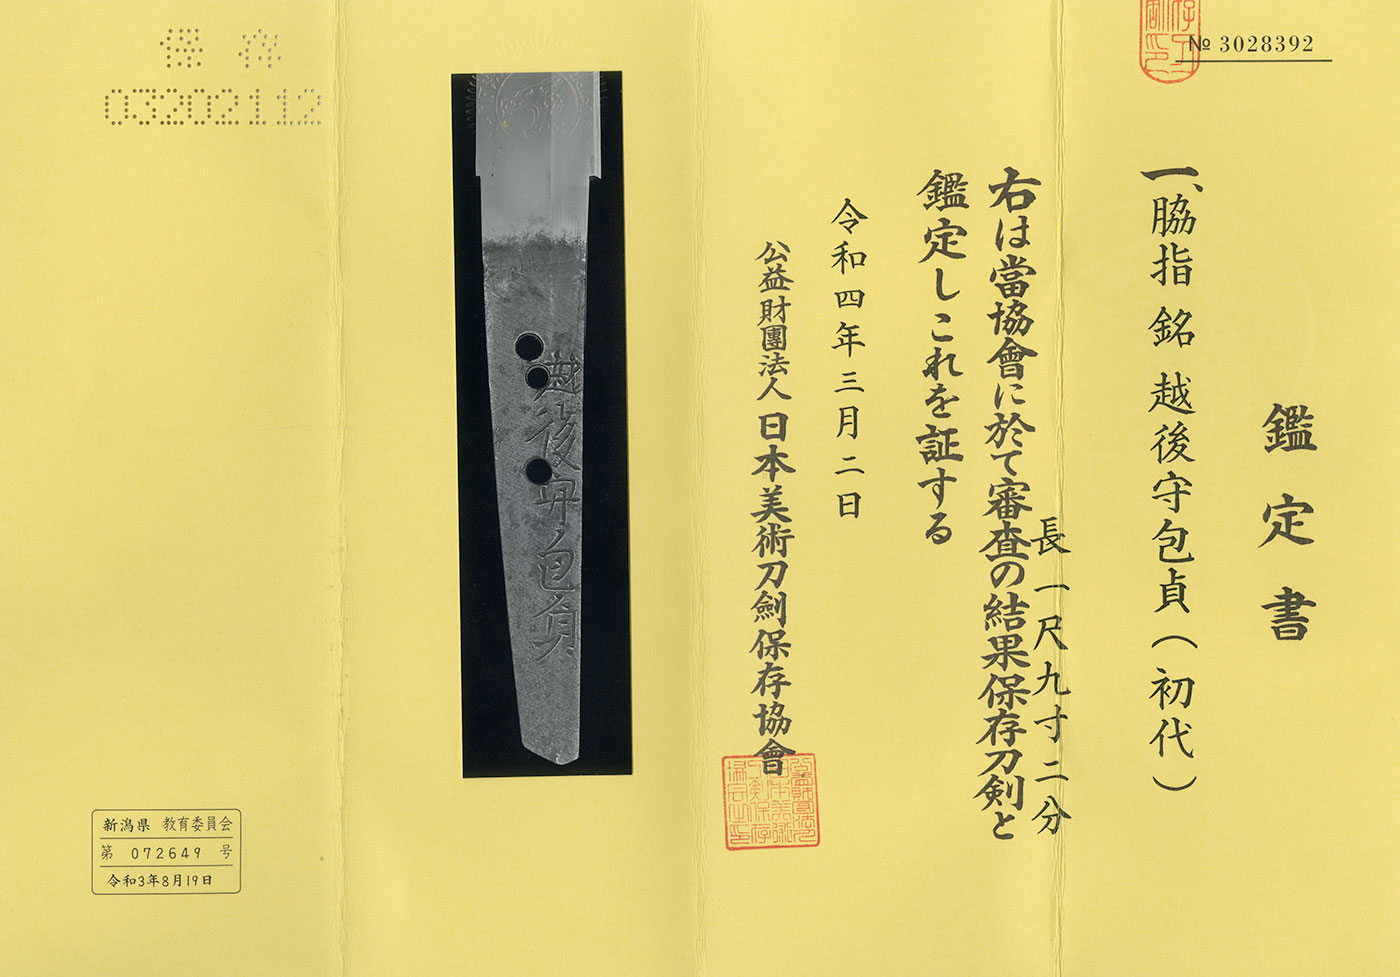 № 3028392
鑑定書
一、脇指 銘 越後守包貞(初代)
長一尺九寸二分
右は當協會に於て審査の結果保存刀剣と
鑑定しこれを証する
令和四年三月二日
公益財團法人日本美術刀劍保存協會
越後守包貞
保存
03202112
新潟県 教育委員会
第 072649 号
令和3年8月19日